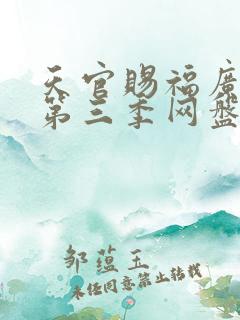 天官赐福广
第三季网盘
邹蕴玉
未经同意禁止转载